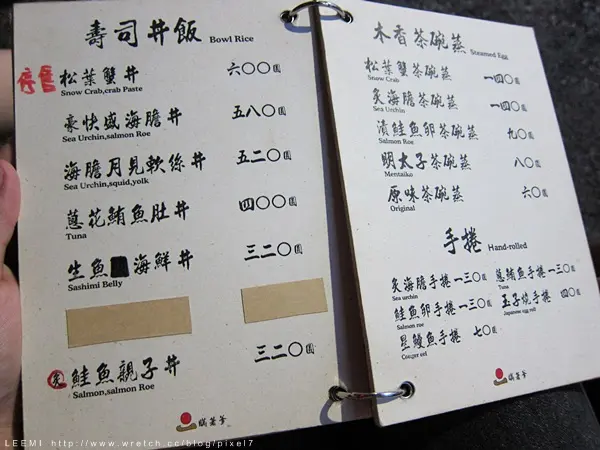 壽司丼飯 Bowl Rice
停售 松葉蟹丼 六〇〇圓
Snow Crab,crab Paste
豪快盛海膽丼 五八〇圓
Sea Urchin,salmon Roe
海膽月見軟絲丼 五二〇圓
Sea Urchin,squid,yolk
蔥花鮪魚肚丼 四〇〇圓
Tuna
生魚 海鮮丼 三二〇圓
Sashimi Belly
鮭魚親子丼 三二〇圓
Salmon,salmon Roe
木香茶碗蒸 Steamed Egg
松葉蟹茶碗蒸 一四〇圓
Snow Crab
炙海膽茶碗蒸 一四〇圓
Sea Urchin
漬鮭魚卵茶碗蒸 九〇圓
Salmon Roe
明太子茶碗蒸 八〇圓
Mentaiko
原味茶碗蒸 六〇圓
Original
手捲 Hand-rolled
炙海膽手捲 一三〇圓 蔥鮪魚手捲 一三〇圓
Sea urchin Tuna
鮭魚卵手捲 一三〇圓 玉子燒手捲 四〇圓
Salmon roe Japanese egg roll
星鰻魚手捲 七〇圓
Conger eel
LEEMI http://www.wretch.cc/blog/pixel7